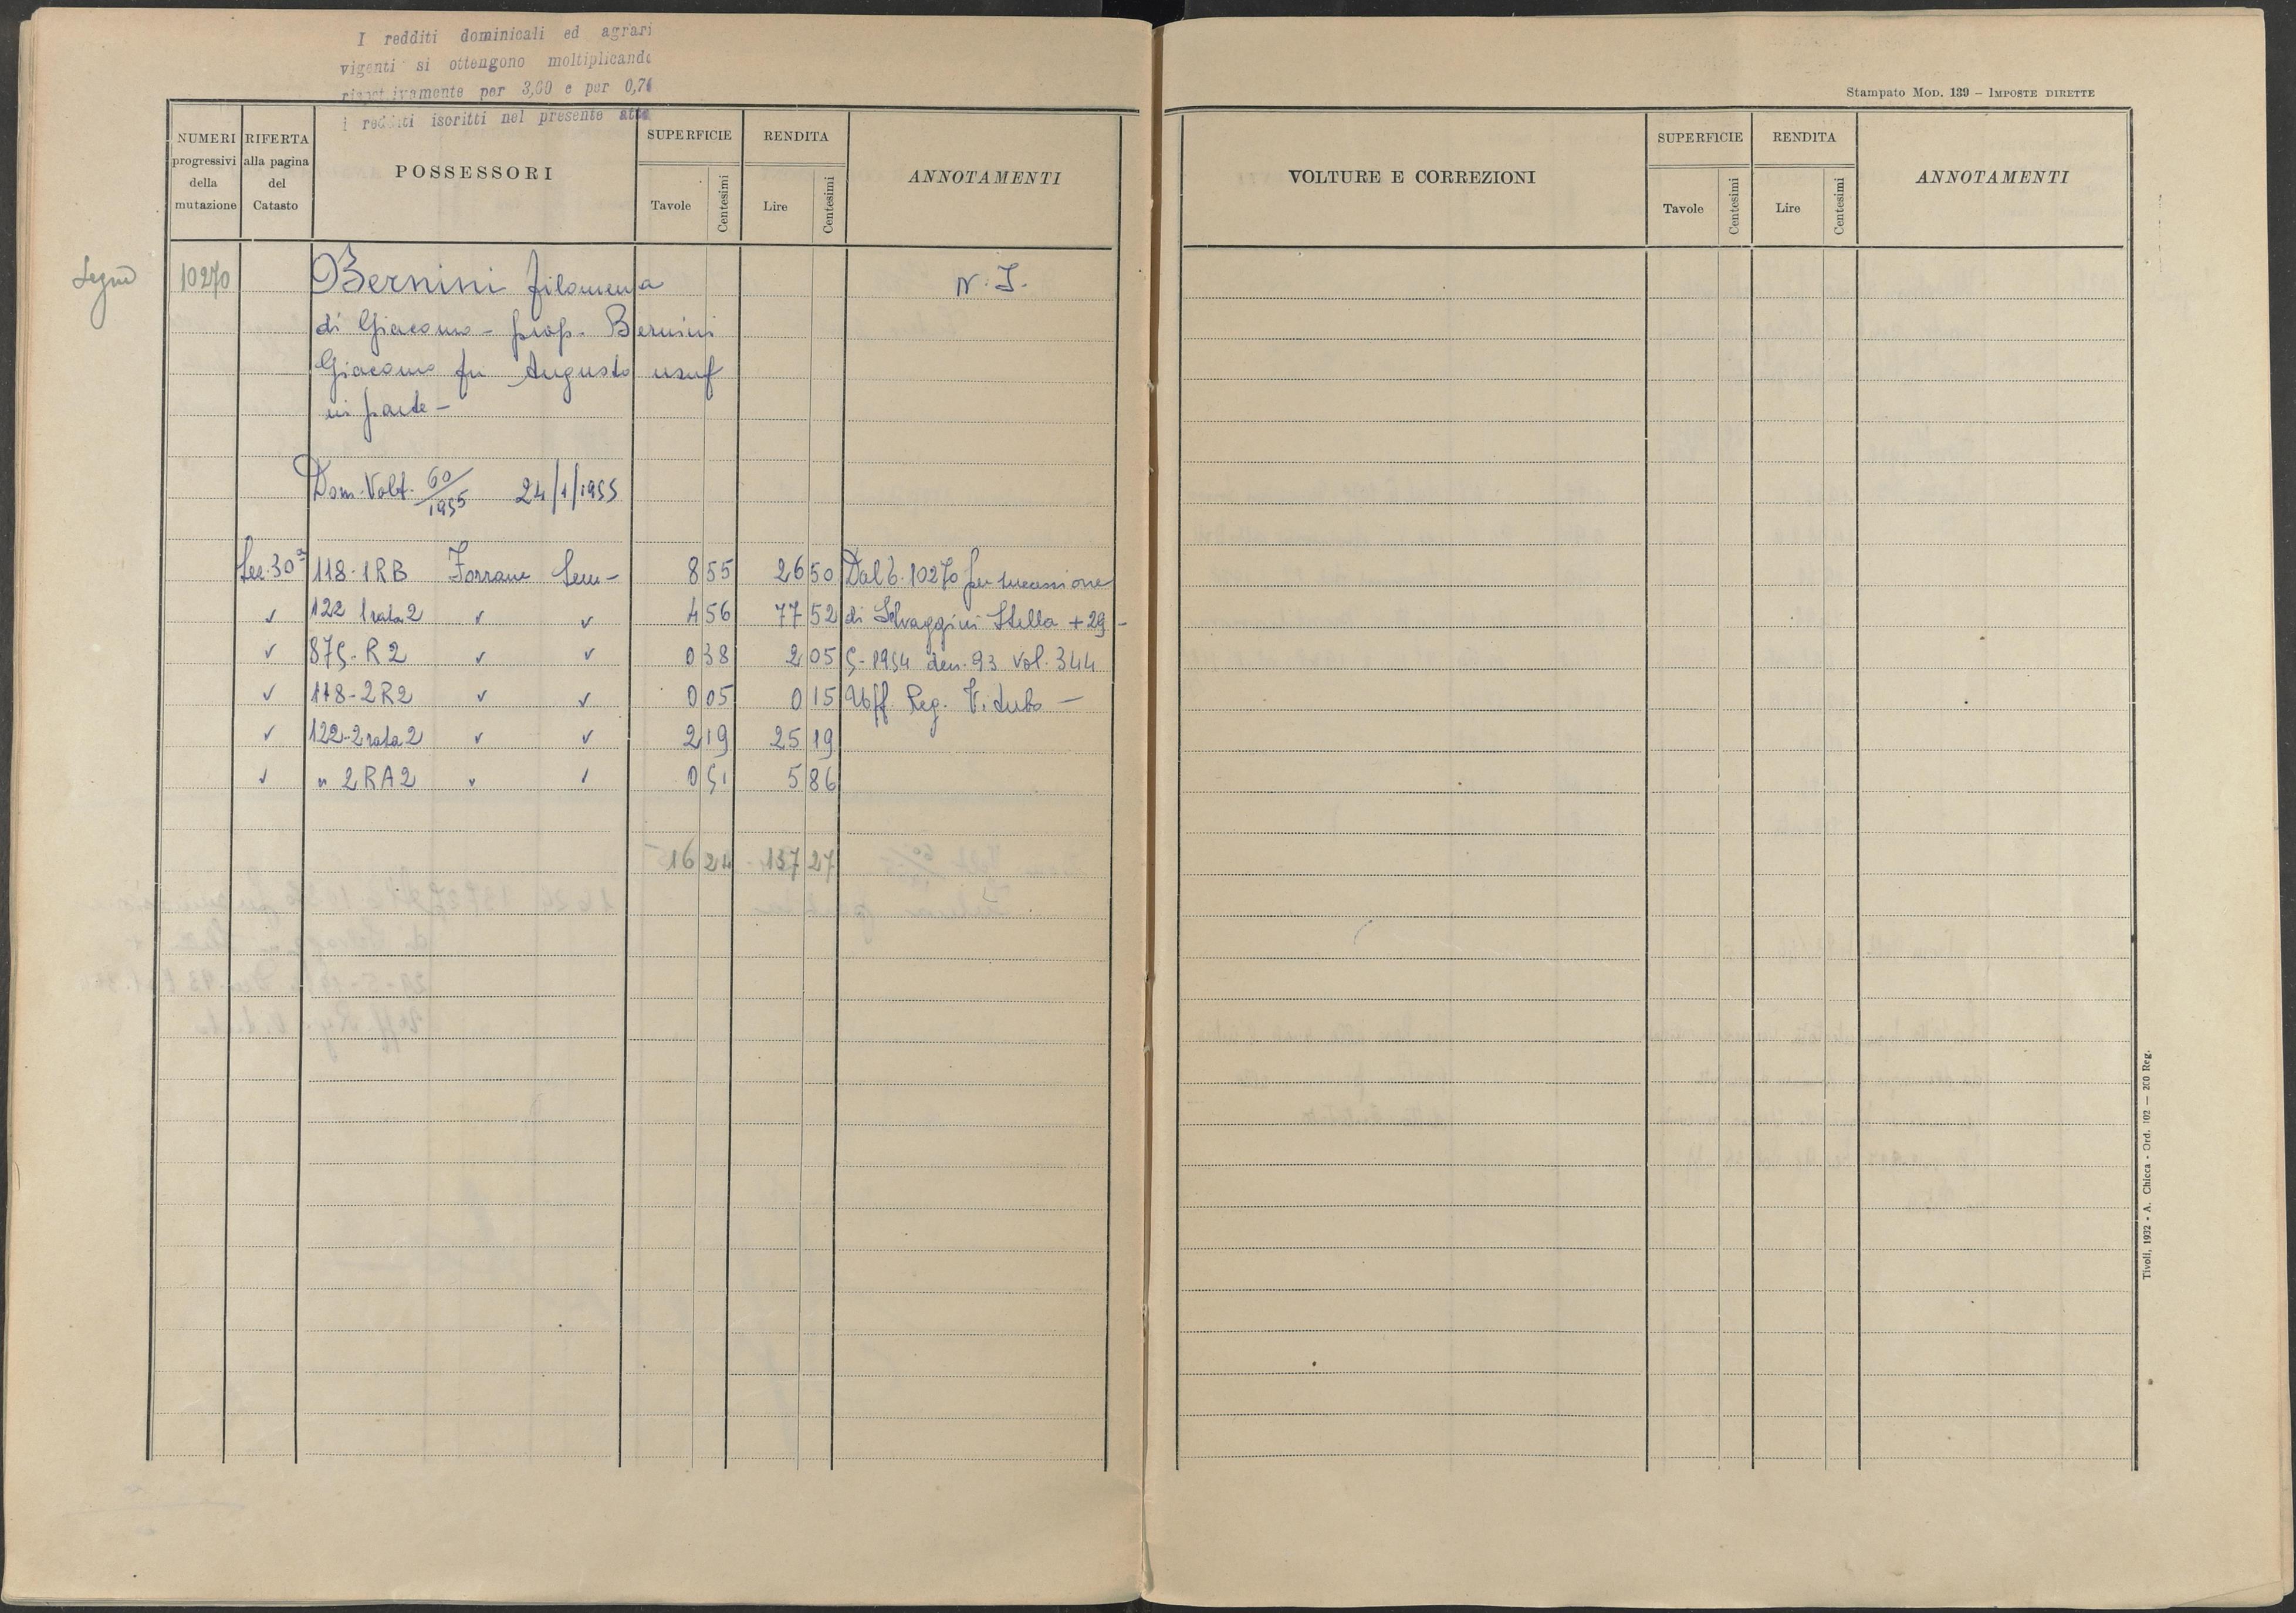 I redditi dominicali ed agrari
vigenti si ottengono moltiplicando
rispettivamente per 3,60 e per
i redditi iscritti nel presente atto
Stampato Mod. 139 – Imposte dirette
NUMERI progressivi della mutazione
RIFERTA alla pagina del Catasto
POSSESSORI
SUPERFICIE
Tavole Centesimi
RENDITA
Lire Centesimi
ANNOTAMENTI
VOLTURE E CORREZIONI
SUPERFICIE
Tavole Centesimi
RENDITA
Lire Centesimi
ANNOTAMENTI
Segue 10270 Bernini filomena N. I.
di Giacomo - prop. Bernini
Giacomo fu Augusto usuf
in parte -
Dom. Volt. 60/1955 24/1/1955
Sez. 30ª 118-1RB Sem- 8 55 26 50 Dal 6. 10270 per successione
✓ 122 1 rata 2 ✓ ✓ 4 56 77 52 di Selvaggini Stella + 29 -
✓ 875-R2 ✓ ✓ 0 38 2 05 5-1954 den. 93 vol. 344
✓ 118-2R2 ✓ ✓ 0 05 0 15 Uff. Reg. Viterbo -
✓ 122-2 rata 2 ✓ ✓ 2 19 25 19
✓ " 2RA2 ✓ ✓ 0 51 5 86
16 24 137 27
Tivoli, 1932 - A. Chicca - Ord. 102 — 200 Reg.